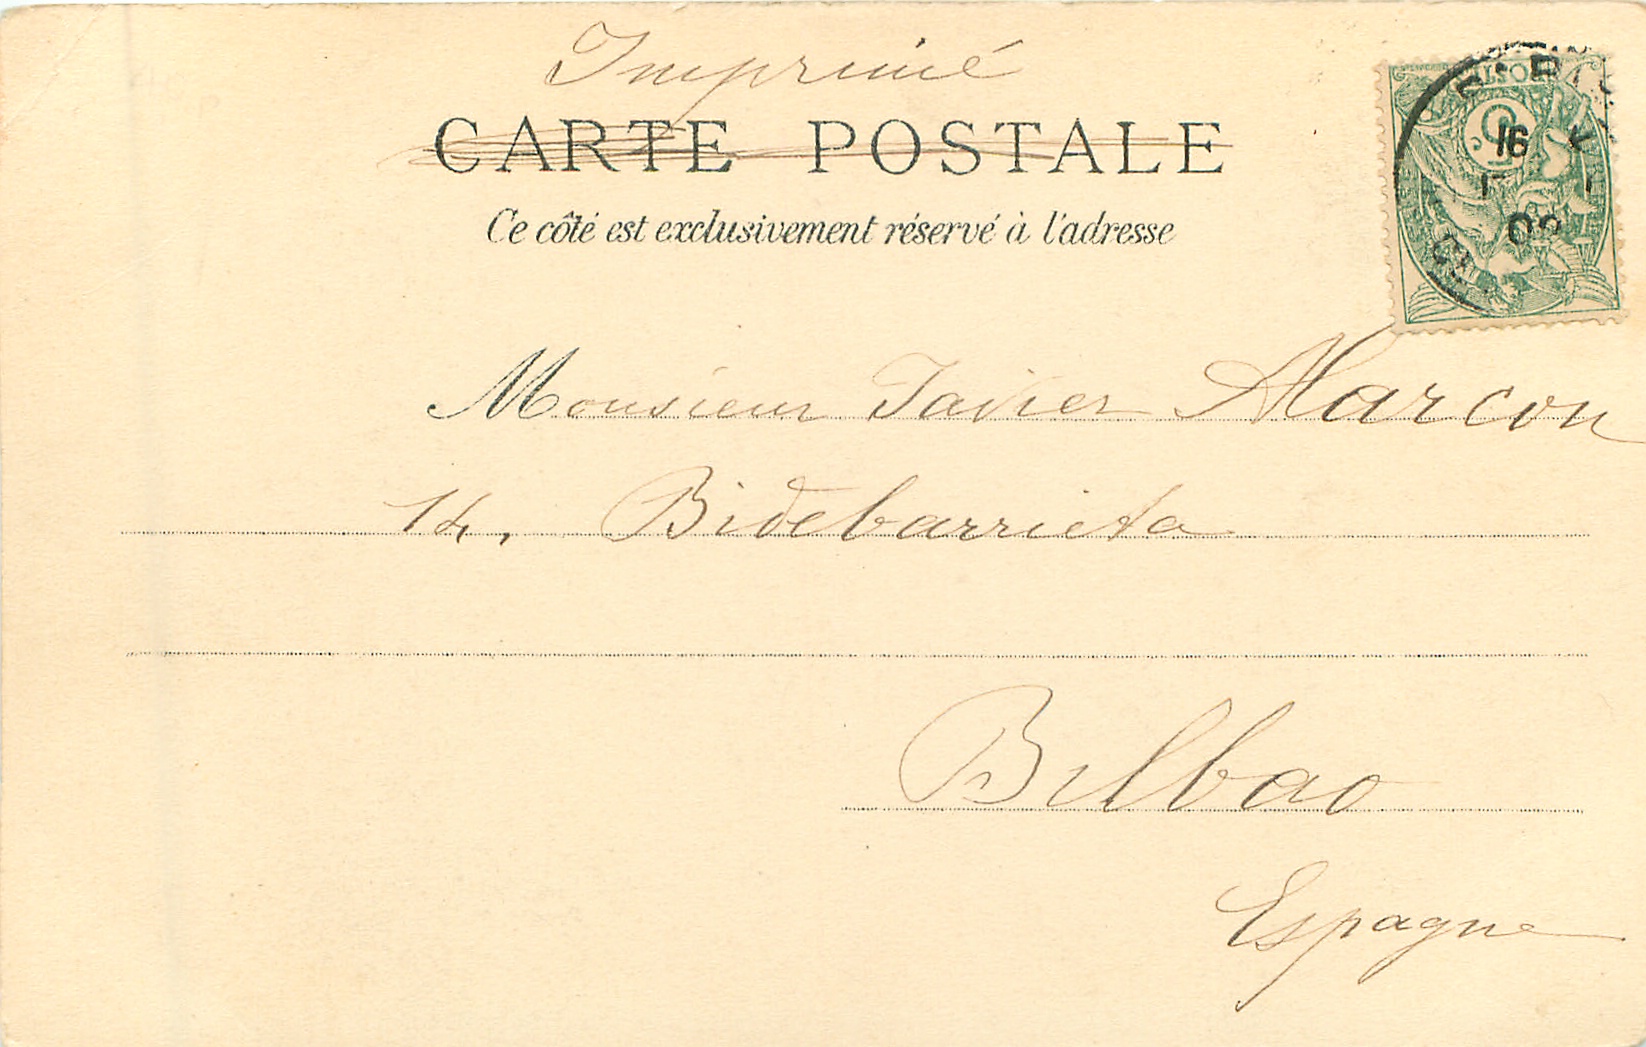 Imprimé
CARTE POSTALE
Ce côté est exclusivement réservé à l'adresse
16
Monsieur Javier Alarcon
14, Bidebarrieta
Bilbao
Espagne